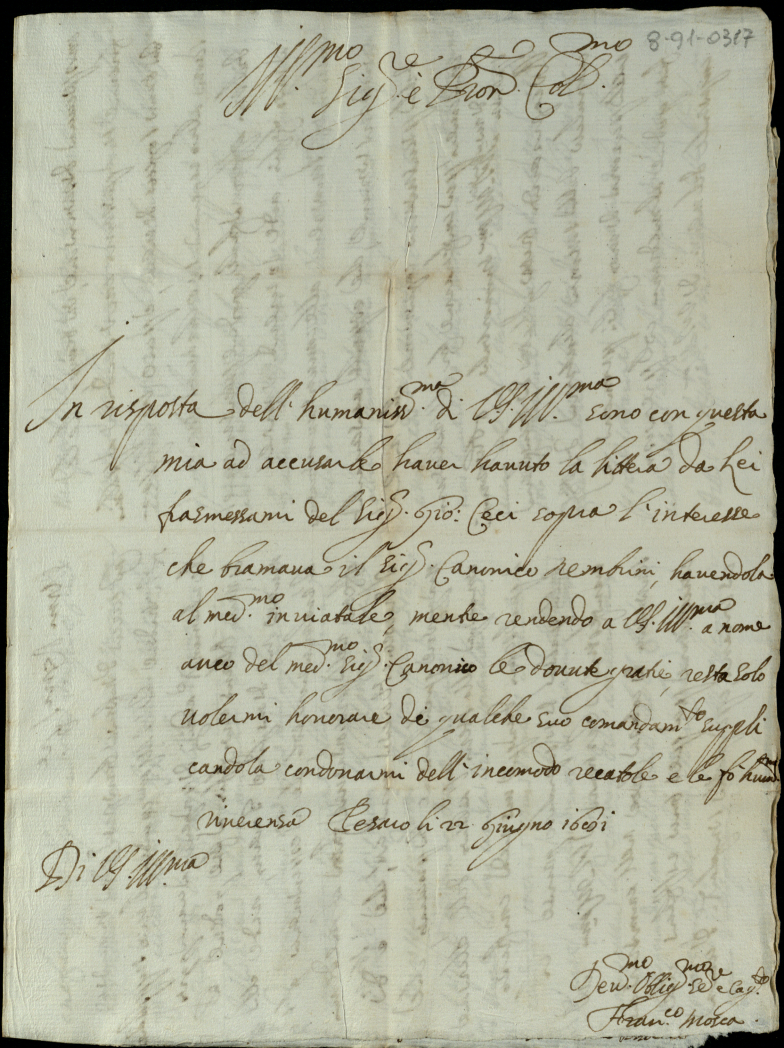 8-91-0317
Ill.mo Sig.re e Pron. Col.mo
In risposta dell'humaniss.ma di VS. Ill.ma sono con questa
mia ad accusarle haver havuto la littera da Lei
trasmessami del Sig.r Gio: Ceci sopra l'interesse
che bramava il Sig.r Canonico Zembrini, havendola
al med.mo inviatale, mentre rendendo a VS. Ill.ma a nome
anco del med.mo Sig.r Canonico le dovute gratie, resta solo
volermi honorare di qualche suo comandam.to suppli
candola condonarmi dell'incomodo recatole e le fo hum.ma
riverensa Pesaro li 22 Giugno 1691
Di VS. Ill.ma
Dev.mo Oblig.mo Se.re e Cap.
Fran.co Mosca